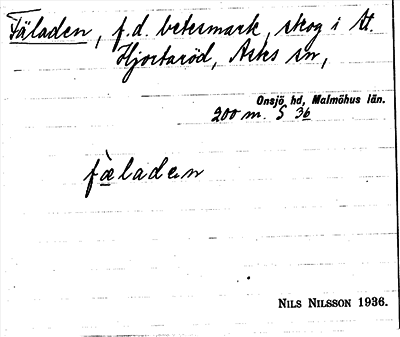 Fäladen, f.d. betesmark, skog i St.
Hjortaröd, Asks sn,
Onsjö hd, Malmöhus län.
200 m. S 36
fäladen
NILS NILSSON 1936.